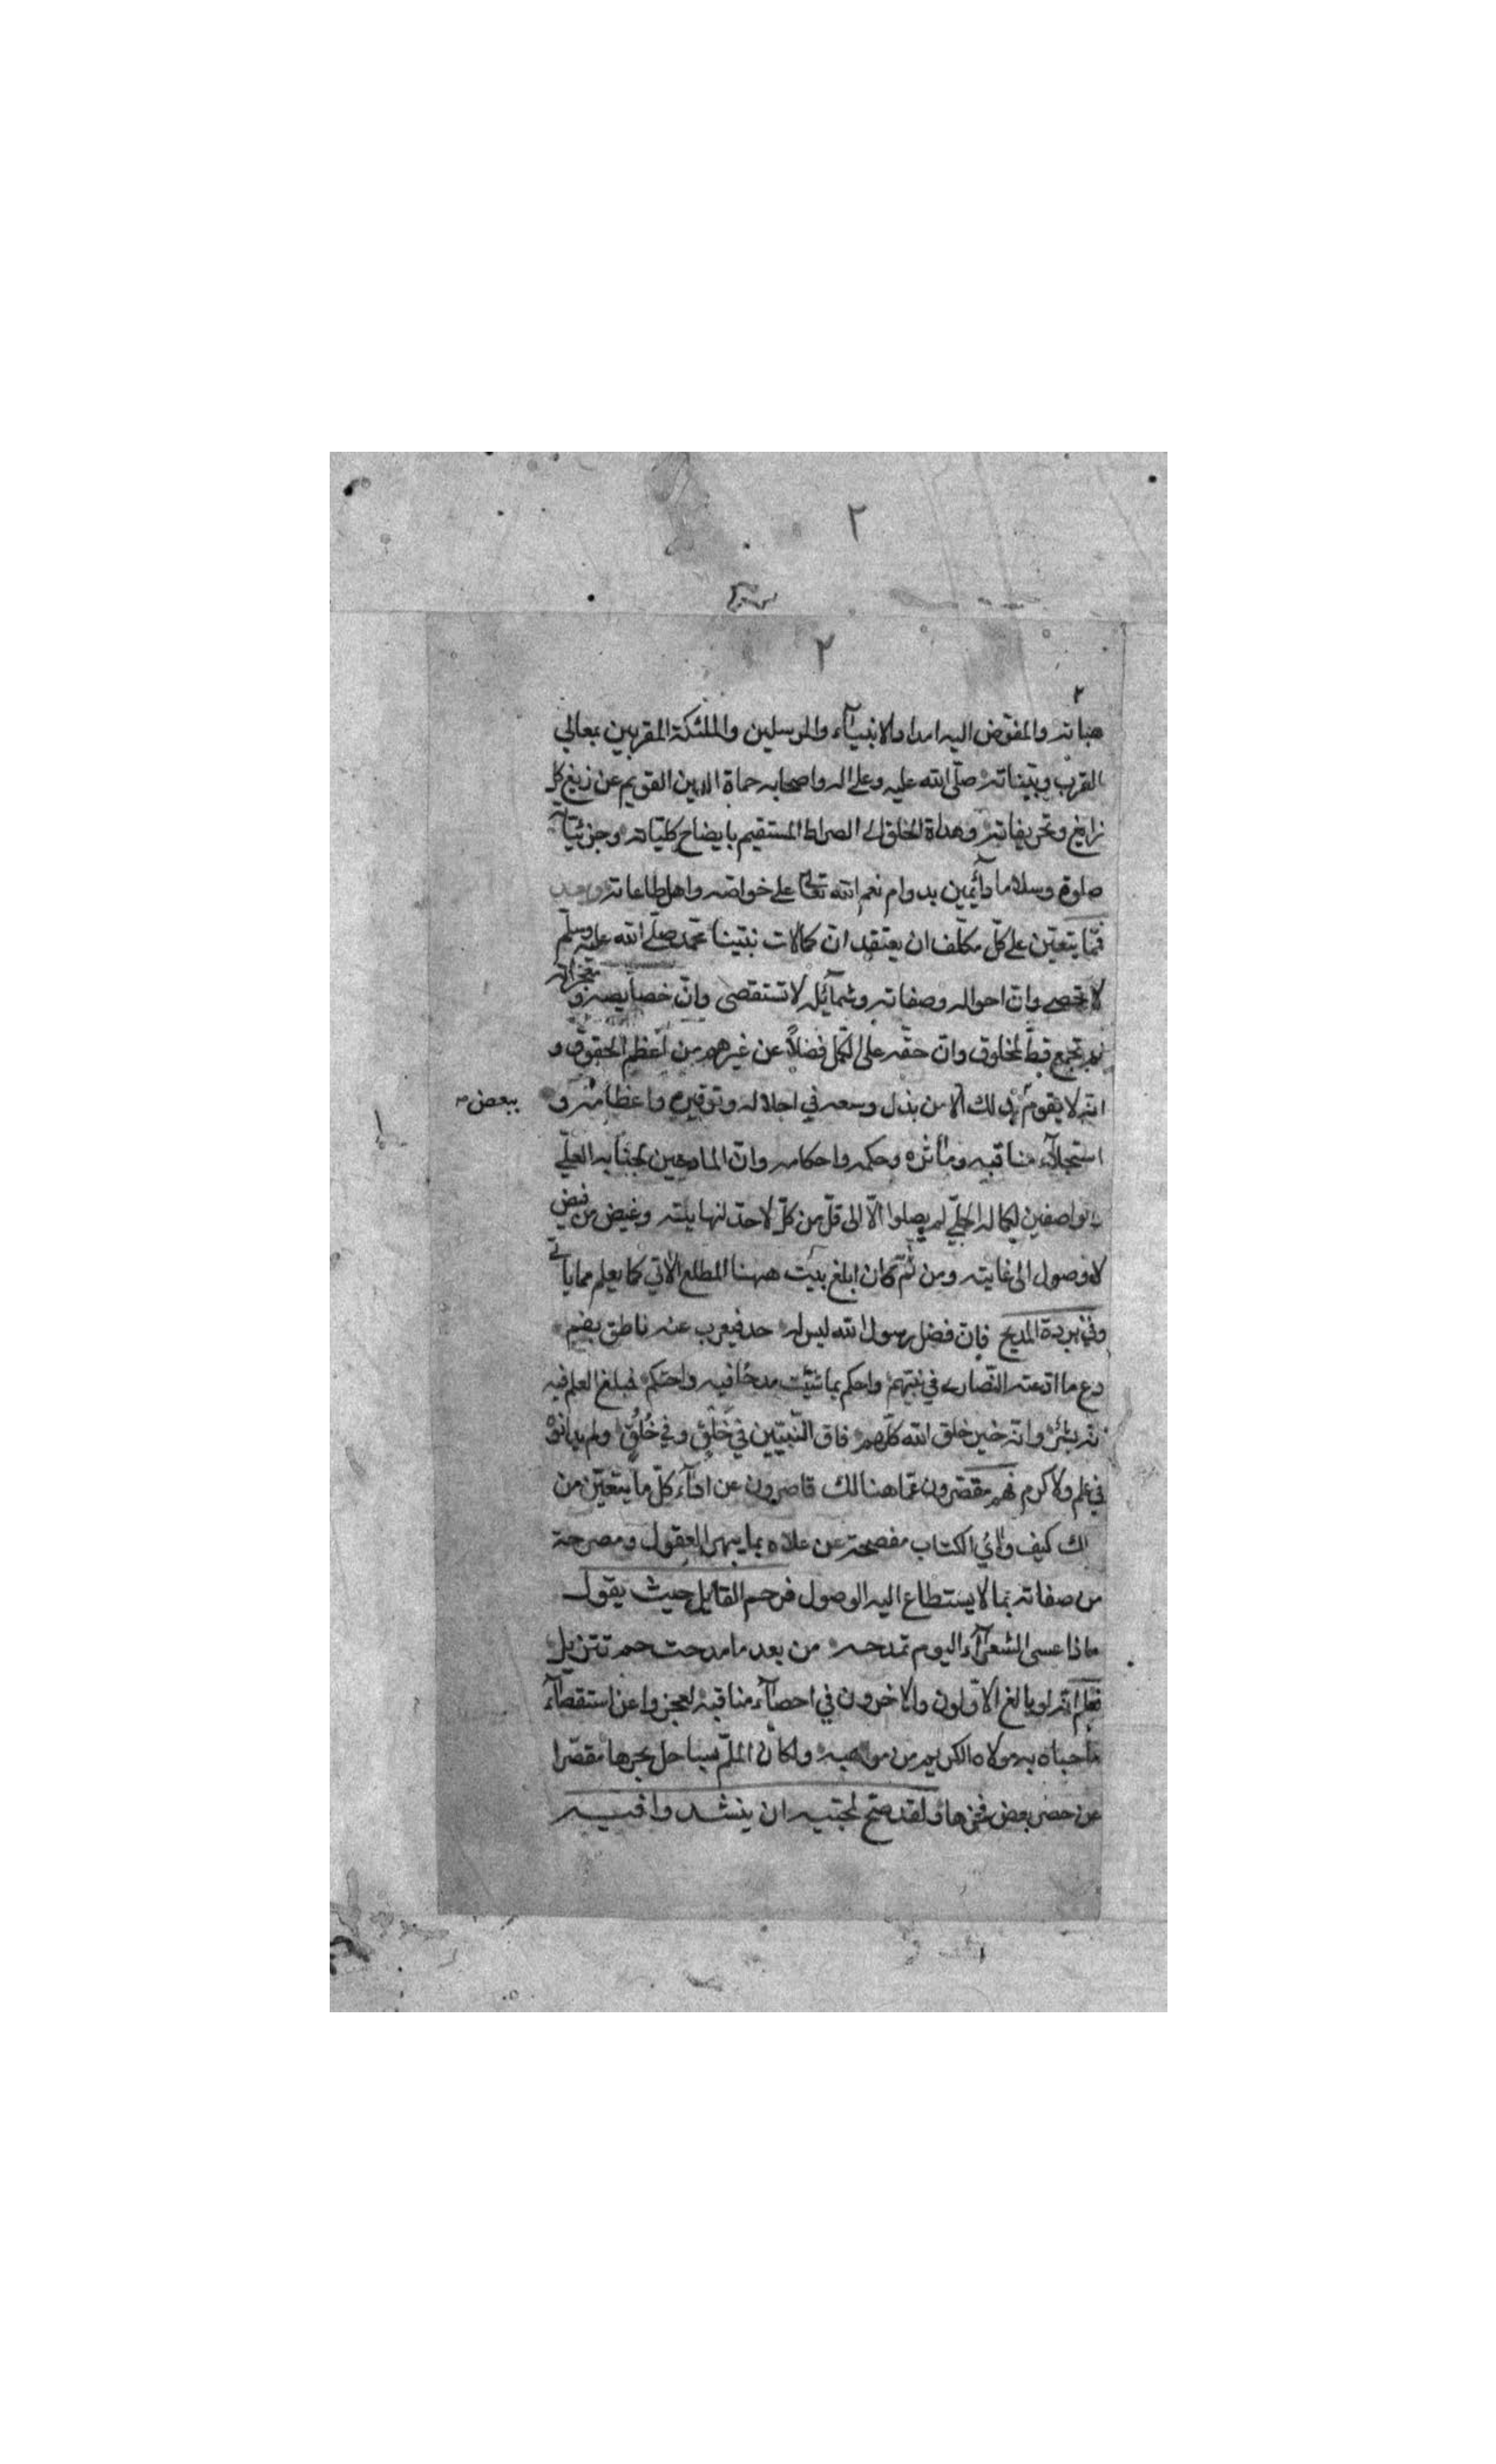 ٢
٢
٢
هباته والمفوّض اليه امداد الانبيآء والمرسلين والملئكة المقربين بمعالي
القرب وبيّناته صلّى الله عليه وعلى اله واصحابه حماة الدين القويم عن زيغ كل
زايغ وتحريفاته وهداة الخلق الى الصراط المستقيم بايضاح كليّاته وجزئيّاته
صلوة وسلاما دآئمين بدوام نعم الله تعالى على خواصّه واهل طاعاته وبعد
فمّا يتعيّن على كلّ مكلّف ان يعتقد انّ كمالات نبيّنا محمّد صلّى الله عليه وسلّم
لا تحصى وانّ احواله وصفاته وشمآئله لا تستقصى وانّ خصايصه ومعجزاته
لم تجمع قطّ لمخلوق وانّ حقّه على الكمّل فضلاً عن غيرهم من اعظم الحقوق و
انّه لا يقوم ذلك الا من بذل وسعه في اجلاله وتوقيره واعظامه و
ببعض
استجلآء مناقبه ومآثره وحكمه واحكامه وانّ المادحين لجنابه العليّ
والواصفين لكماله الجليّ لم يصلوا الّا الى قلّ من كلّ لا حدّ لنهايته وغيض من فيض
لا وصول الى غايته ومن ثمّ كان ابلغ بيت ههنا المطلع الاتي كما يعلم مما ياتي
وفي بردة المديح فانّ فضل رسول الله ليس له حد فيعرب عنه ناطق بفم
دع ما ادّعته النّصارى في نبيّهم واحكم بما شئت مدحا فيه واحتكم فمبلغ العلم فيه
انّه بشر وانّه خير خلق الله كلّهم فاق النّبيّين في خَلق وفي خُلُق ولم يدانوه
في علم ولا كرم فهم مقصّرون عمّا هنالك قاصرون عن ادآء كلّ ما يتعيّن من
ذلك كيف وآي الكتاب مفصحة عن علاه بما يبهر العقول ومصرحة
من صفاته بما لا يستطاع اليه الوصول فرحم القايل حيث يقول
ماذا عسى الشعرآء اليوم تمدحه من بعد ما مدحت حم تنزيل
فعلم انّه لو بالغ الاوّلون والاخرون في احصآء مناقبه لعجزوا عن استقصآء
ما حباه به مولاه الكريم من مواهبه ولكان الملمّ بساحل بحرها مقصّرا
عن حصر بعض فخرها ولقد صحّ لمحبّيه ان ينشدوا فيه